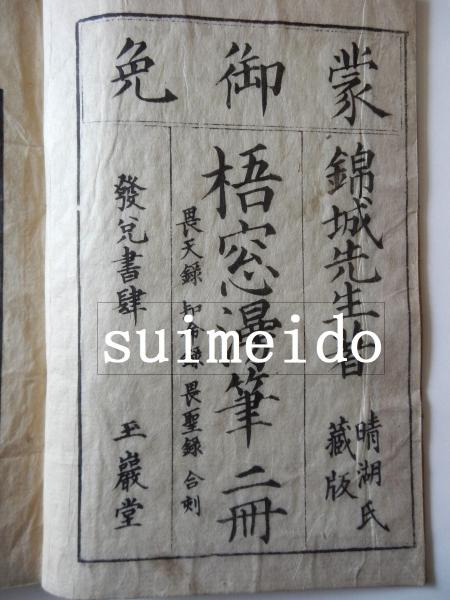 蒙御免
錦城先生著
晴湖氏
藏版
梧窓漫筆 二冊
畏天録 知命録 畏聖録 合刻
發兌書肆 玉巖堂
suimeido